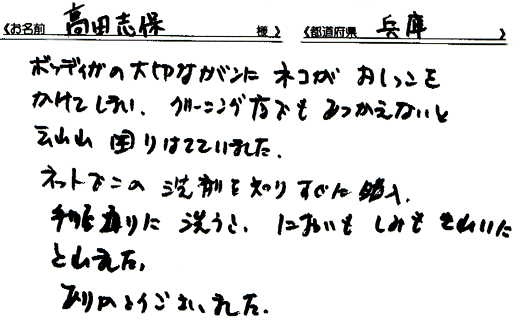 《お名前 高田志保 様》 《都道府県 兵庫 》
ボッテガの大切なカバンにネコがおしっこを
かけてしまい、クリーニング店でもあつかえないと
云われ困りはてていました。
ネットでこの洗剤を知りすぐに購入。
手順通りに洗うと、においもしみもきれいに
とれました。
ありがとうございました。